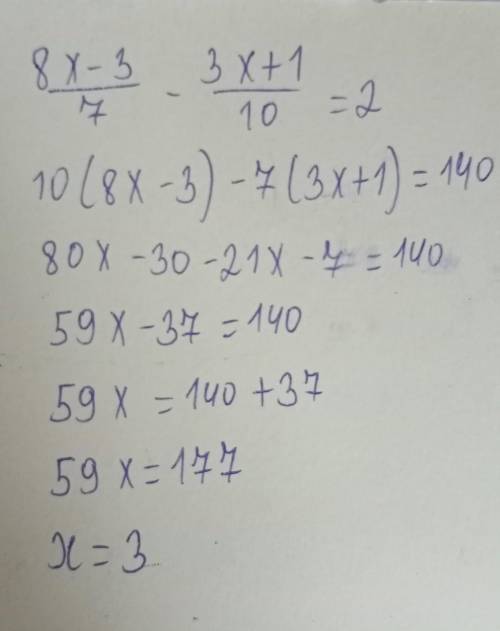 (8x-3)/7 - (3x+1)/10 = 2
10(8x-3)-7(3x+1)=140
80x-30-21x-7=140
59x-37=140
59x=140+37
59x=177
x=3